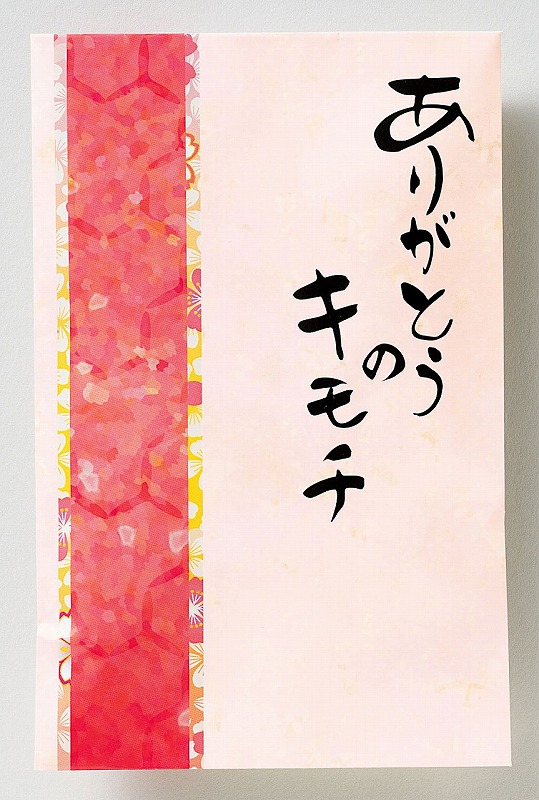 ありがとう
の
キモチ